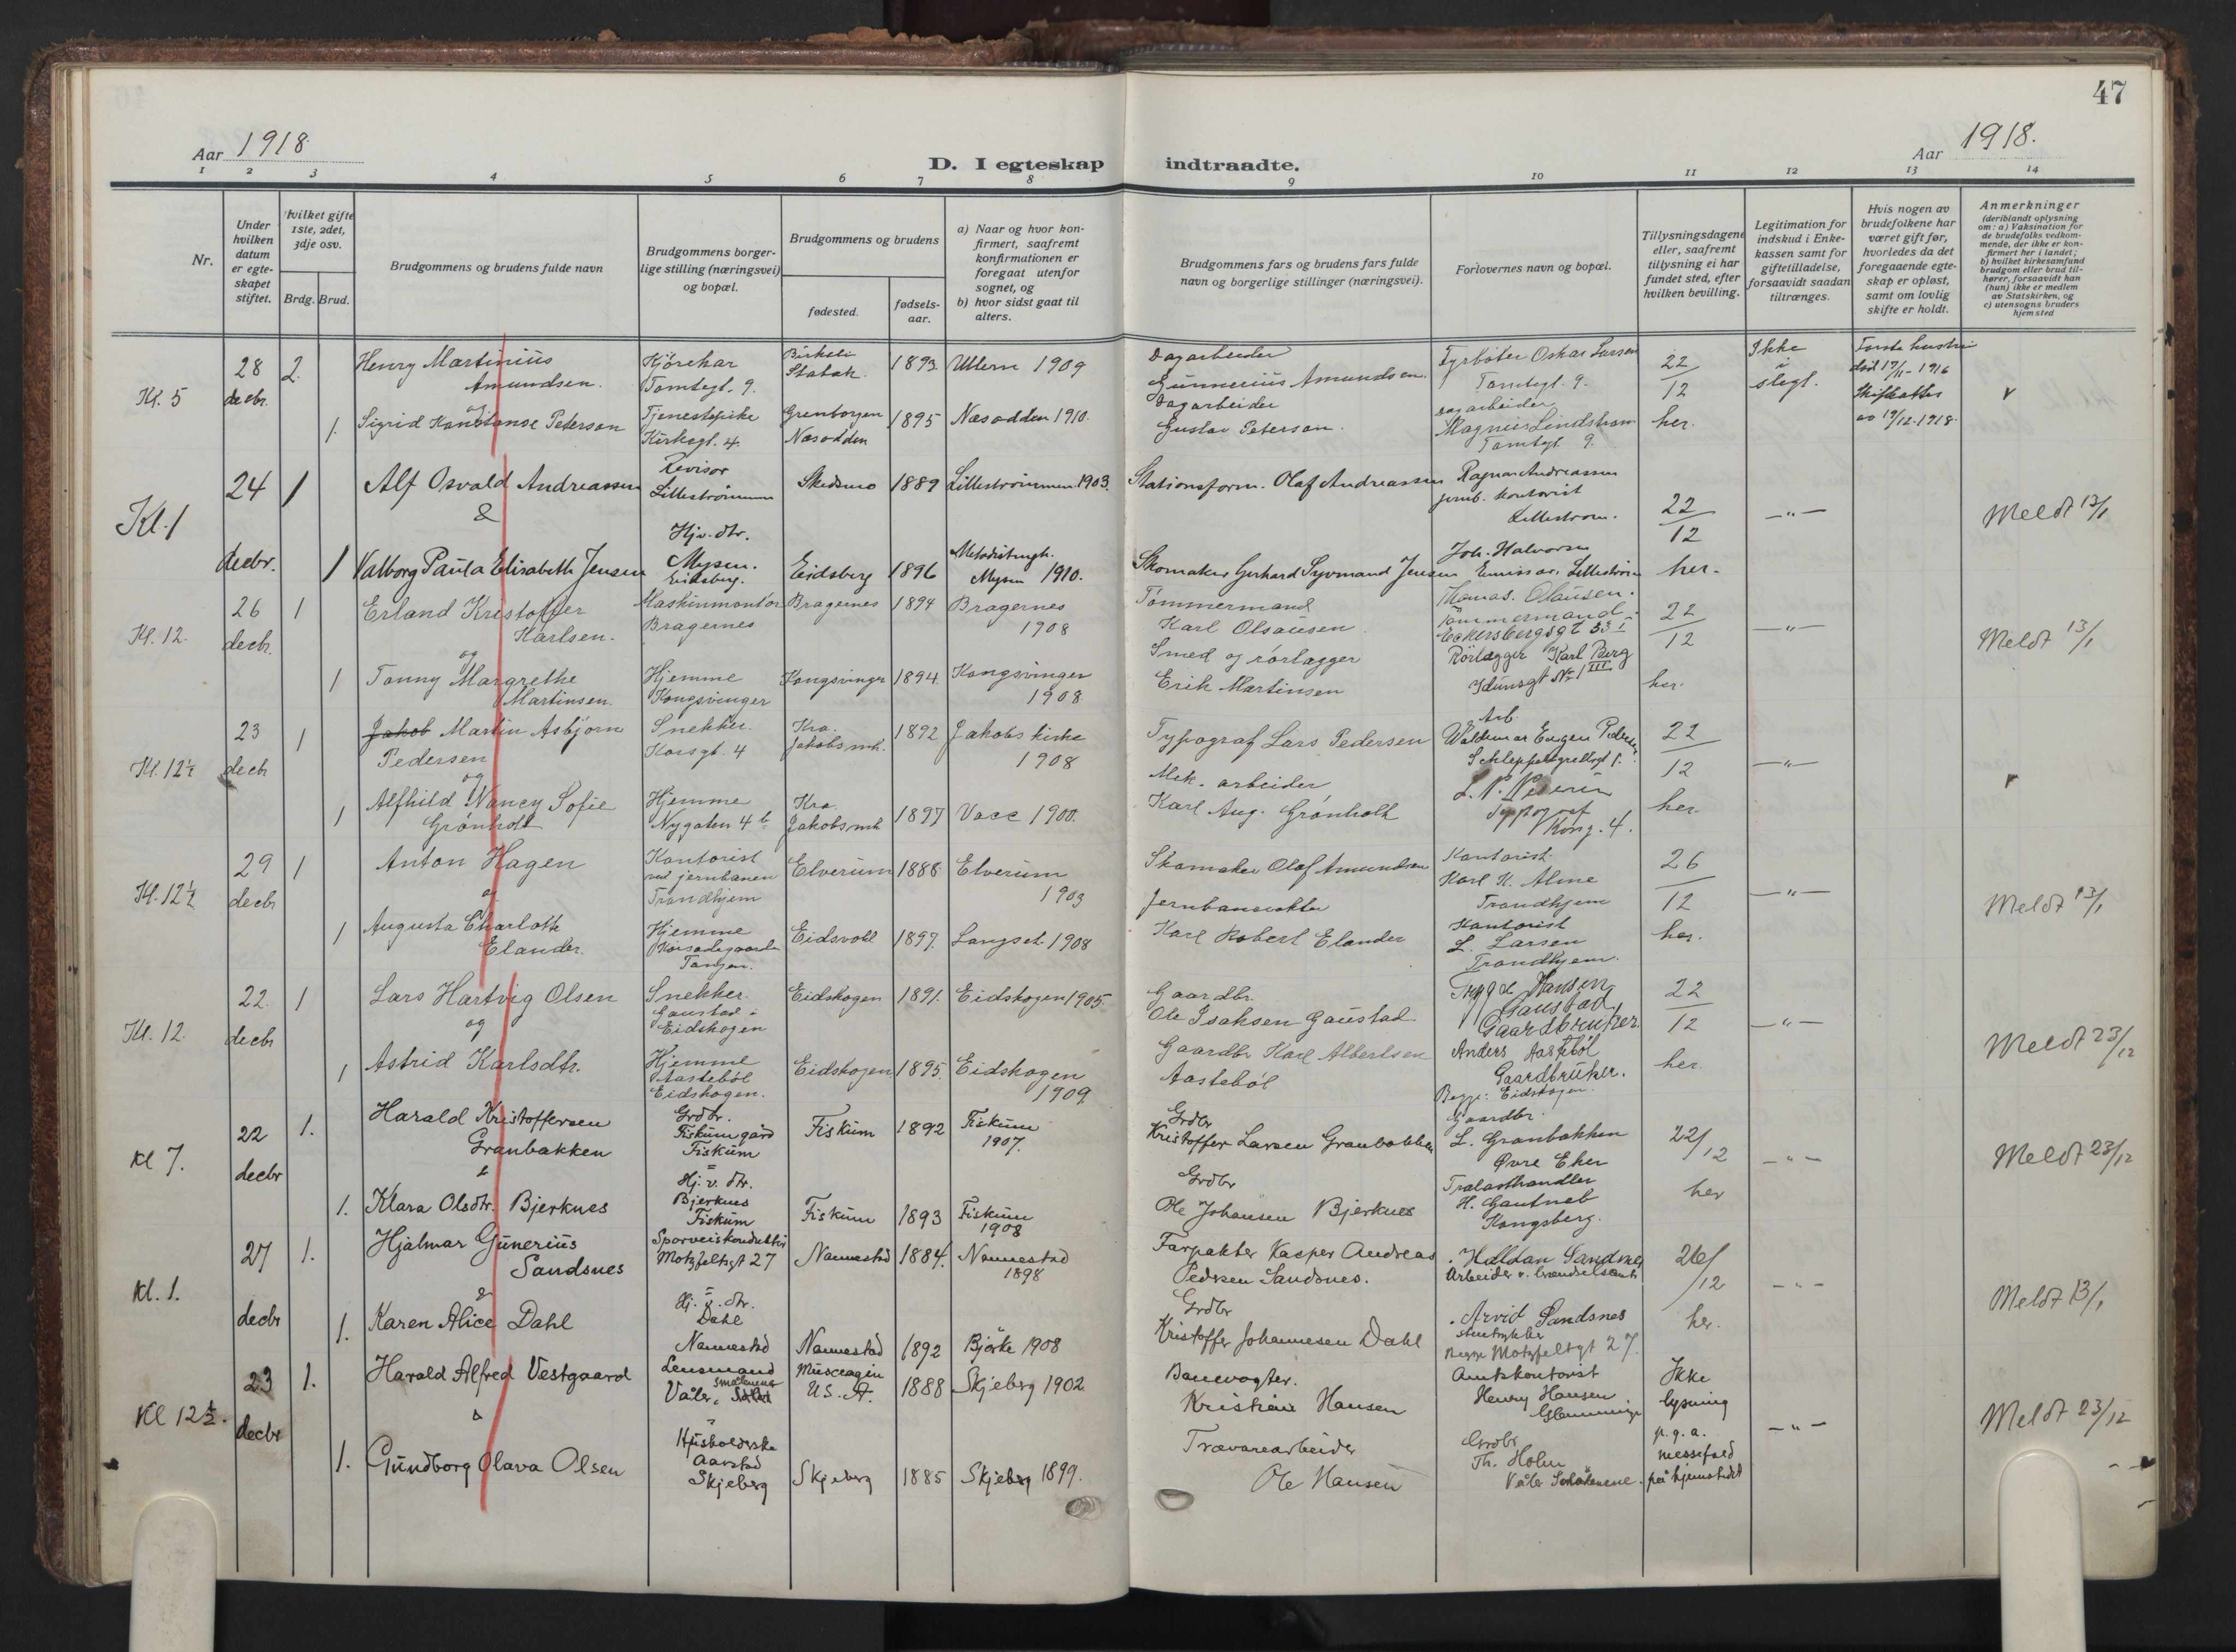 47
Aar 1918.
Aar 1918.
D. I egteskap indtraadte.
1 2 3 4 5 6 7 8 9 10 11 12 13 14
Nr.
Under hvilken datum er egteskapet stiftet.
Hvilket gifte 1ste, 2det, 3dje osv.
Brdg. Brud.
Brudgommens og brudens fulde navn
Brudgommens borgerlige stilling (næringsvei) og bopæl.
Brudgommens og brudens
fødested.
fødselsaar.
a) Naar og hvor konfirmert, saafremt konfirmationen er foregaat utenfor sognet, og
b) hvor sidst gaat til alters.
Brudgommens fars og brudens fars fulde navn og borgerlige stillinger (næringsvei).
Forlovernes navn og bopæl.
Tillysningsdagene eller, saafremt tillysning ei har fundet sted, efter hvilken bevilling.
Legitimation for indskud i Enkekassen samt for giftetilladelse, forsaavidt saadan tiltrænges.
Hvis nogen av brudefolkene har været gift før, hvorledes da det foregaaende egteskap er opløst, samt om lovlig skifte er holdt.
Anmerkninger
(deriblandt oplysning om: a) Vaksination for de brudefolks vedkommende, der ikke er konfirmert her i landet; b) hvilket kirkesamfund brudgom eller brud tilhører, forsaavidt han (hun) ikke er medlem av Statskirken, og c) utensogns bruders hjemsted
Kl. 5 28 decbr. 2. Henry Martinius Amundsen. Kjørekar Tomtegt. 9. 1893 Ullern 1909 Dagarbeider Gunnerius Amundsen. Fyrbøter Oskar Larsen Tomtegt. 9. 22/12 Ikke i slegt. Første hustru død 17/11-1916
og
1. Sigrid Konstanse Peterson Tjenestepike Kirkegt. 4. Grenborgen Næsodden 1895 Næsodden 1910. Dagarbeider Gustav Peterson. Dagarbeider Magnus Lindstrøm Tomtegt. 9. her. Skifteattest av 19/12-1918.
Kl. 1 24 decbr. 1 Alf Osvald Andreassen Revisor Lillestrømmen Skedsmo 1889 Lillestrømmen 1903. Stationsform. Olaf Andreassen Ragnar Andreassen jernb. kontorist Lillestrøm. 22/12 -"- Meldt 13/1
&
1 Valborg Paula Elisabeth Jensen Hjv. dtr. Mysen. Eidsberg. Eidsberg 1896 Metodistmgh. Mysen 1910. Skomaker Gerhard Syvmand Jensen Joh. Halvorsen Emissær. Lillestrøm her.
Kl. 12. 26 decbr. 1 Erland Kristoffer Karlsen. Maskinmontør Bragernes Bragernes 1894 Bragernes 1908 Tømmermand Karl Olausen Thomas. Olausen. Tømmermand. Eckersbergsgt 33 I 22/12 -"- Meldt 13/1
og
1 Tonny Margrethe Martinsen. Hjemme Kongsvinger Kongsvinger 1894 Kongsvinger 1908 Smed og rørlægger Erik Martinsen Rørlægger Karl Berg Idunsgt No 1 III her.
Kl. 12½ 23 decbr 1 Jakob Martin Asbjørn Pedersen Snekker. Korsgt. 4 Kra. Jakobs mh. 1892 Jakobs kirke 1908 Typograf Lars Pedersen Arb. Waldemar Eugen Pedersen Schleppegrellsgt 1. 22/12 -"-
og
1 Alfhild Nancy Sofie Grønholt Hjemme Nygaten 4 b Kra. Jakobs mh 1897 Vacc 1900. Mek. arbeider Karl Aug. Grønholt Typograf her.
Kl. 12½ 29 decbr 1 Anton Hagen Kontorist ved jernbanen Trondhjem Elverum 1888 Elverum 1903 Skomaker Olaf Amundsen Kontorist. Karl K. Alme Trondhjem 26/12 -"- Meldt 13/1
og
1 Augusta Charlotte Elander. Hjemme Tangen. Eidsvold 1897. Langset 1908 Karl Robert Elander Kontorist L. Larsen Trondhjem. her.
Kl. 12. 22 decbr 1 Lars Hartvig Olsen Snekker. Gaustad i Eidskogen Eidskogen 1891. Eidskogen 1905. Gaardbr. Ole Isaksen Gaustad. Trygve Hansen Gaustad, Gaardbruker. 22/12 -"- Meldt 23/12
og
1 Astrid Karlsdtr. Hjemme Aastebøl Eidskogen. Eidskogen 1895. Eidskogen 1909. Gaardbr Karl Albertsen Aastebøl Anders Aastebøl Gaardbruker. Begge: Eidskogen. her.
Kl 7. 22 decbr 1. Harald Kristoffersen Granbakken Grdbr. Fiskum gård Fiskum Fiskum 1892 Fiskum 1907. Grdbr Kristoffer Larsen Granbakken Gaardbr. L. Granbakken Øvre Eker 22/12 -"- Meldt 23/12
&
1. Klara Olsdtr. Bjerknes Hj. v. dtr. Bjerknes Fiskum Fiskum 1893 Fiskum 1908 Grdbr Ole Johansen Bjerknes Trælasthandler H. Gautneb Kongsberg. her
Kl. 1. 27 decbr 1. Hjalmar Gunerius Sandsnes Sporveiskonduktør Motzfeltsgt 27 Nannestad 1884. Nannestad 1898 Forpakter Kasper Andreas Pedersen Sandsnes. Halfdan Sandsnes Arbeider 26/12 -"- Meldt 13/1
&
1. Karen Alice Dahl Hj. v. dtr. Dahl Nannestad Nannestad 1892 Bjørke 1908 Grdbr Kristoffer Johannesen Dahl Arvid Sandsnes Begge Motzfeltsgt 27. her.
Kl 12½. 23 decbr 1. Harald Alfred Vestgaard Lensmand Våler, Smålenene U.S.A. 1888 Skjeberg 1902 Banevogter. Kristian Hansen Amtskontorist Henry Hansen Glemminge Ikke lysning p.g.a. messefald på hjemstedet -"- Meldt 23/12
&
1. Gundborg Olava Olsen Husholderske Aarstad Skjeberg Skjeberg 1885 Skjeberg 1899. Trævarearbeider Ole Hansen Grdbr Th. Holm Våler Smålenene.